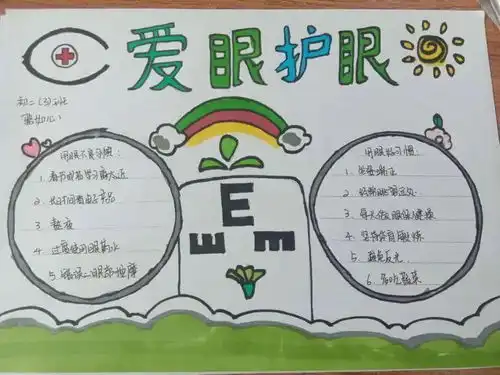 爱眼护眼
初二(3)班
用眼不良习惯：
1. 看书或者学习离太近
2. 长时间看电子产品
3. 熬夜
4. 过度使用眼药水
5.
用眼好习惯：
1. 坐姿端正
2. 经常眺望远处
3. 每天做眼保健操
4. 坚持体育锻炼
5. 避免反光
6. 多吃蔬菜
E
E
E